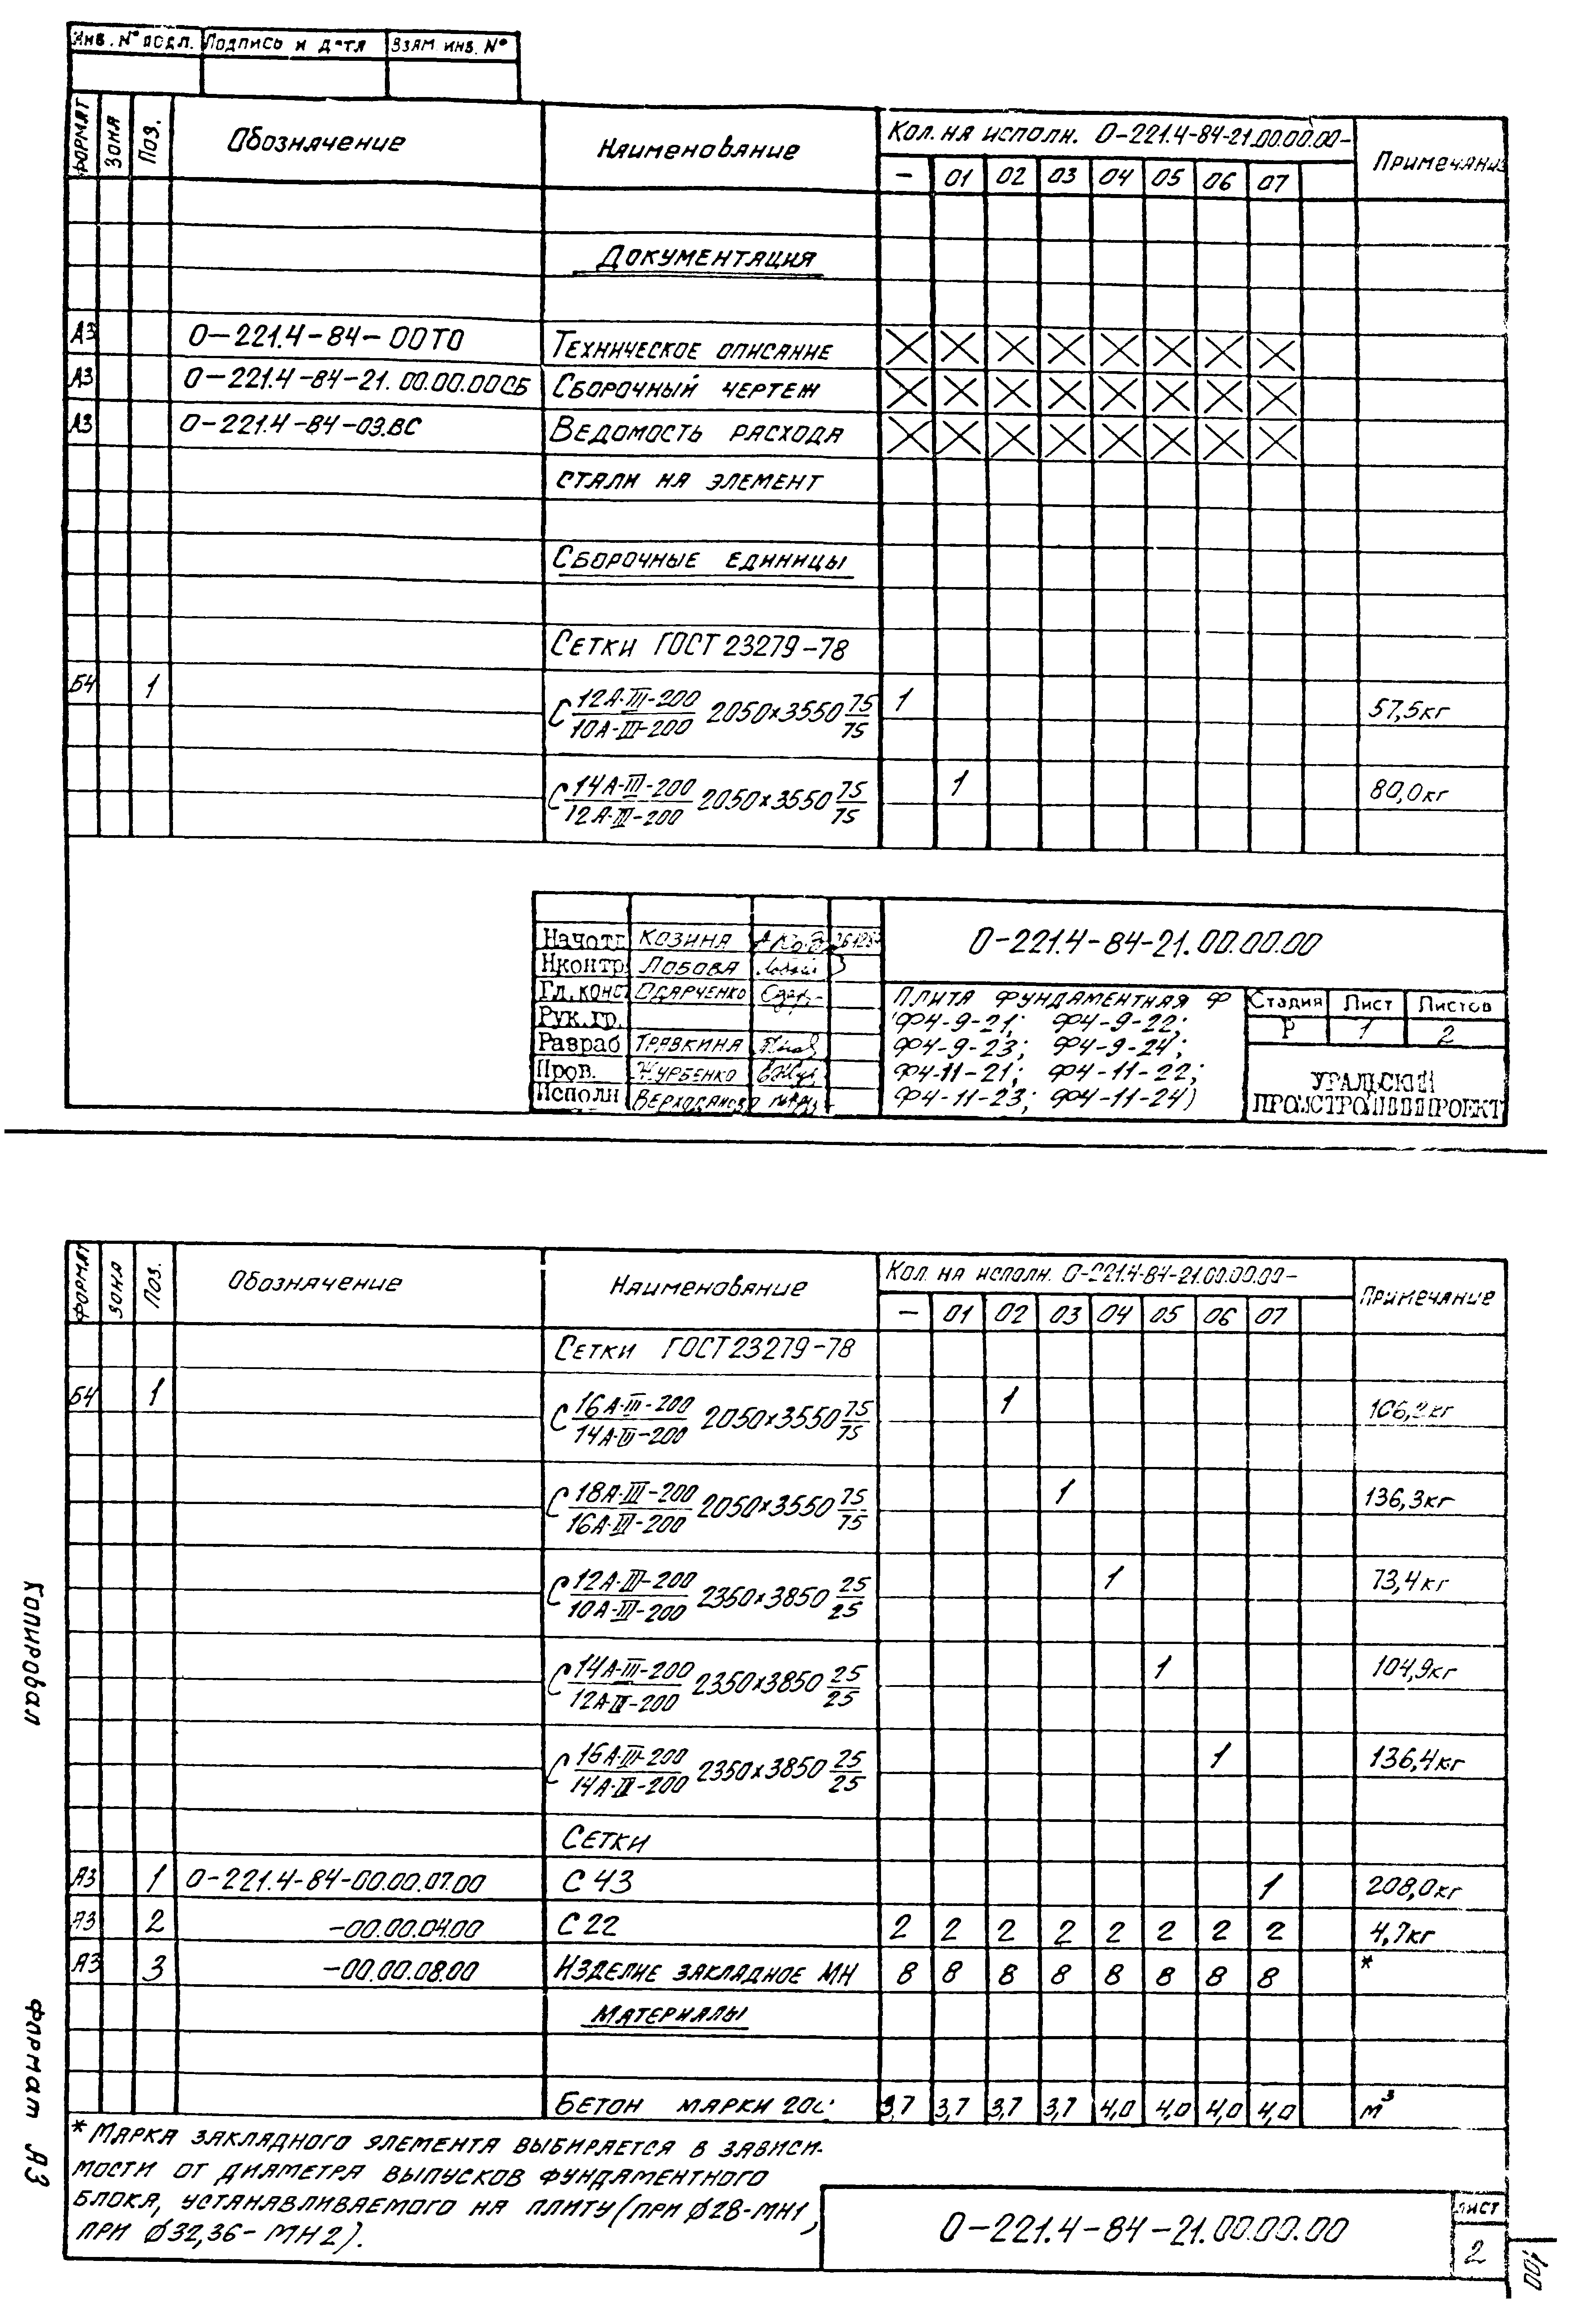 Инв. № подл. Подпись и дата Взам инв. №
Формат Зона Поз. Обозначение Наименование Кол. на исполн. О-221.4-84-21.00.00.00- Примечание
- 01 02 03 04 05 06 07
Документация
А3 О-221.4-84-00ТО Техническое описание
А3 О-221.4-84-21.00.00.00СБ Сборочный чертеж
А3 О-221.4-84-03.ВС Ведомость расхода
стали на элемент
Сборочные единицы
Сетки ГОСТ 23279-78
Б4 1 С 12А-III-200/10А-III-200 2050×3550 75/75 1 57,5кг
С 14А-III-200/12А-III-200 2050×3550 75/75 1 80,0кг
Начотд Козина
Нконтр Лобова
Гл.конс Одарченко
Рук.гр.
Разраб Травкина
Пров. Журбенко
Исполн
О-221.4-84-21.00.00.00
Плита фундаментная Ф
(Ф4-9-21; Ф4-9-22;
Ф4-9-23; Ф4-9-24;
Ф4-11-21; Ф4-11-22;
Ф4-11-23; Ф4-11-24)
Стадия Лист Листов
Р 1 2
УРАЛЬСКИЙ
ПРОМСТРОЙНИИПРОЕКТ
Формат Зона Поз. Обозначение Наименование Кол. на исполн. О-221.4-84-21.00.00.00- Примечание
- 01 02 03 04 05 06 07
Сетки ГОСТ 23279-78
Б4 1 С 16А-III-200/14А-III-200 2050×3550 75/75 1 106,2кг
С 18А-III-200/16А-III-200 2050×3550 75/75 1 136,3кг
С 12А-III-200/10А-III-200 2350×3850 25/25 1 73,4кг
С 14А-III-200/12А-III-200 2350×3850 25/25 1 104,9кг
С 16А-III-200/14А-III-200 2350×3850 25/25 1 136,4кг
Сетки
А3 1 О-221.4-84-00.00.07.00 С 43 1 208,0кг
А3 2 -00.00.04.00 С 22 2 2 2 2 2 2 2 2 4,7кг
А3 3 -00.00.08.00 Изделие закладное МН 8 8 8 8 8 8 8 8 *
Материалы
Бетон марки 200 3,7 3,7 3,7 3,7 4,0 4,0 4,0 4,0 м³
* Марка закладного элемента выбирается в зависи-
мости от диаметра выпусков фундаментного
блока, устанавливаемого на плиту (при ϕ28-МН1,
при ϕ32,36-МН2).
О-221.4-84-21.00.00.00
Лист
2
Копировал
Формат А3
100